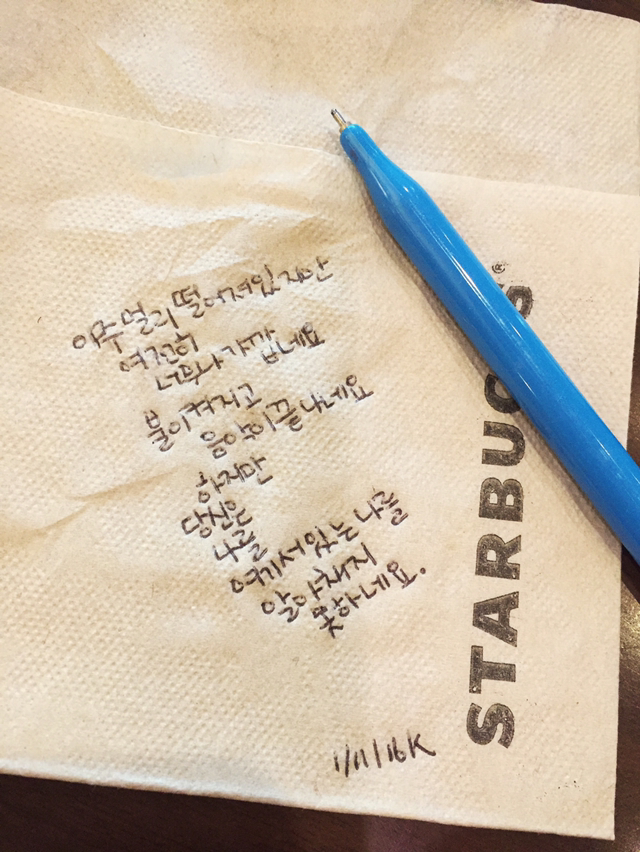 아주 멀리 떨어져있지만
여전히
너무나 가깝네요
불이켜지고
음악이끝나네요
하지만
당신은
나를
여기서있는 나를
알아채지
못하네요.
1/11/16K
STARBUCKS®